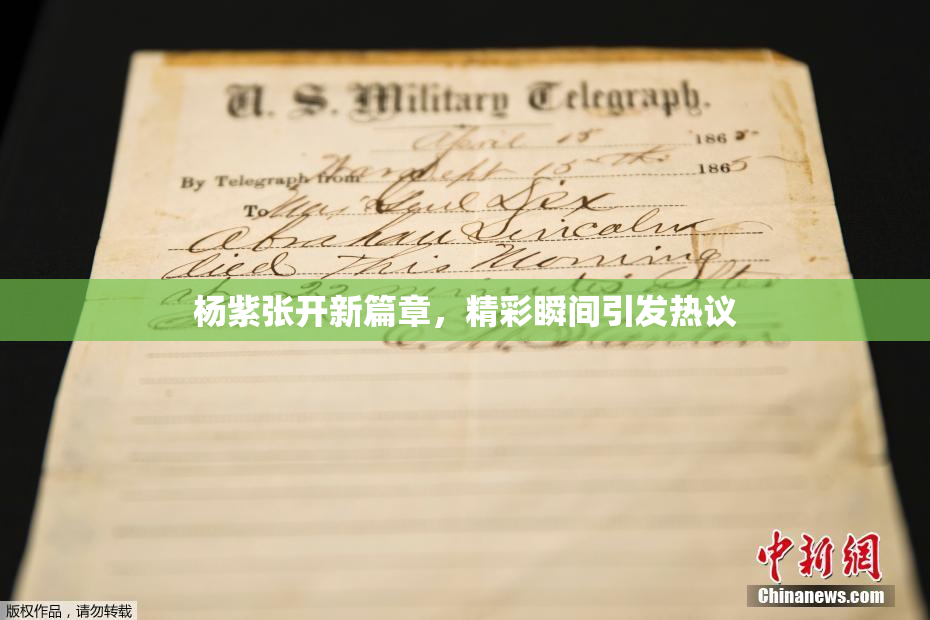 U. S. Military Telegraph.
April 15 1865
By Telegraph from War Dept 15th 1865
To Maj Genl Dix
Abraham Lincoln
died This Morning
at 22 minutes after
杨紫张开新篇章，精彩瞬间引发热议
中新网
Chinanews.com
版权作品，请勿转载